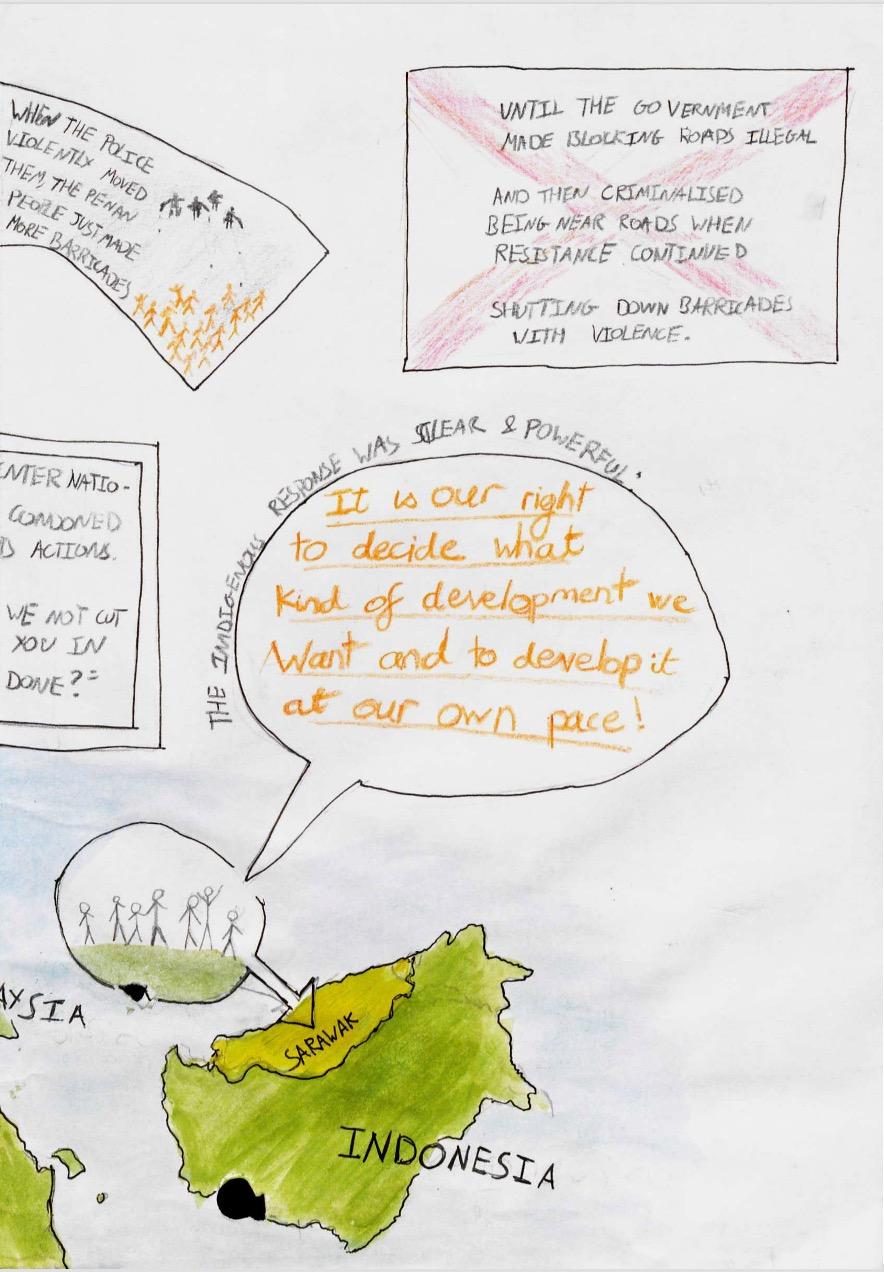 WHEN THE POLICE
VIOLENTLY MOVED
THEM, THE PENAN
PEOPLE JUST MADE
MORE BARRICADES
UNTIL THE GOVERNMENT
MADE BLOCKING ROADS ILLEGAL
AND THEN CRIMINALISED
BEING NEAR ROADS WHEN
RESISTANCE CONTINUED
SHUTTING DOWN BARRICADES
WITH VIOLENCE.
INTERNATIO-
CONDONED
ACTIONS.
WE NOT CUT
YOU IN
DONE?"
THE INDIGENOUS RESPONSE WAS CLEAR & POWERFUL.
It is our right
to decide what
kind of development we
want and to develop it
at our own pace!
AYSIA
SARAWAK
INDONESIA